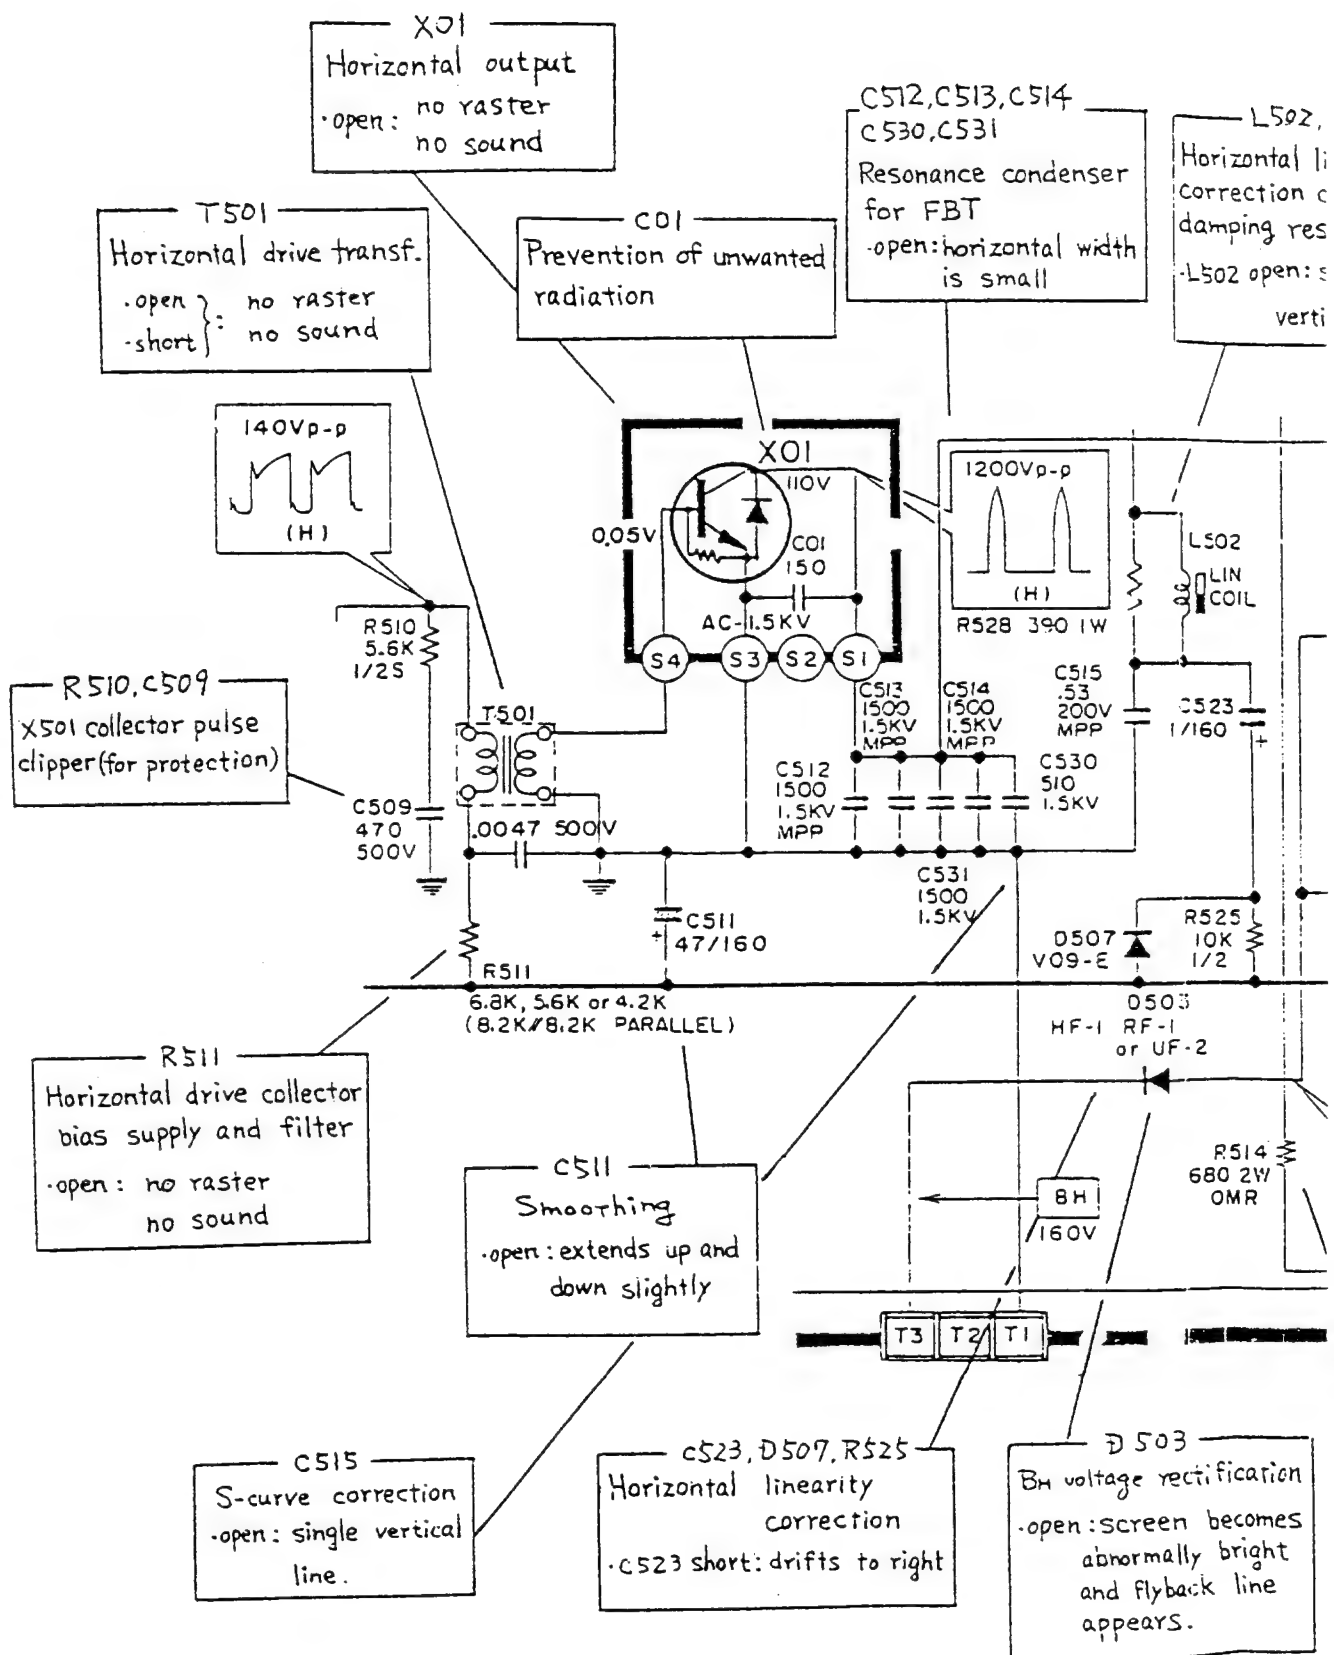 X01
Horizontal output
·open: no raster
no sound
C512, C513, C514
C530, C531
Resonance condenser
for FBT
·open: horizontal width
is small
L502,
Horizontal li
correction c
damping res
·L502 open: s
verti
T501
Horizontal drive transf.
·open
·short}: no raster
no sound
C01
Prevention of unwanted
radiation
140Vp-p
(H)
X01
110V
0.05V
C01
150
AC-1.5KV
S4
S3
S2
S1
1200Vp-p
(H)
R528 390 1W
L502
LIN
COIL
R510
5.6K
1/2S
R510, C509
X501 collector pulse
clipper (for protection)
T501
C509
470
500V
.0047 500V
C513
1500
1.5KV
MPP
C514
1500
1.5KV
MPP
C512
1500
1.5KV
MPP
C530
510
1.5KV
C515
.53
200V
MPP
C523
1/160
+
C531
1500
1.5KV
+
C511
47/160
D507
V09-E
R525
10K
1/2
R511
6.8K, 5.6K or 4.2K
(8.2K//8.2K PARALLEL)
D503
HF-1 RF-1
or UF-2
R511
Horizontal drive collector
bias supply and filter
·open: no raster
no sound
C511
Smoothing
·open: extends up and
down slightly
BH
160V
R514
680 2W
OMR
T3
T2
T1
C515
S-curve correction
·open: single vertical
line.
C523, D507, R525
Horizontal linearity
correction
·C523 short: drifts to right
D503
BH voltage rectification
·open: screen becomes
abnormally bright
and flyback line
appears.